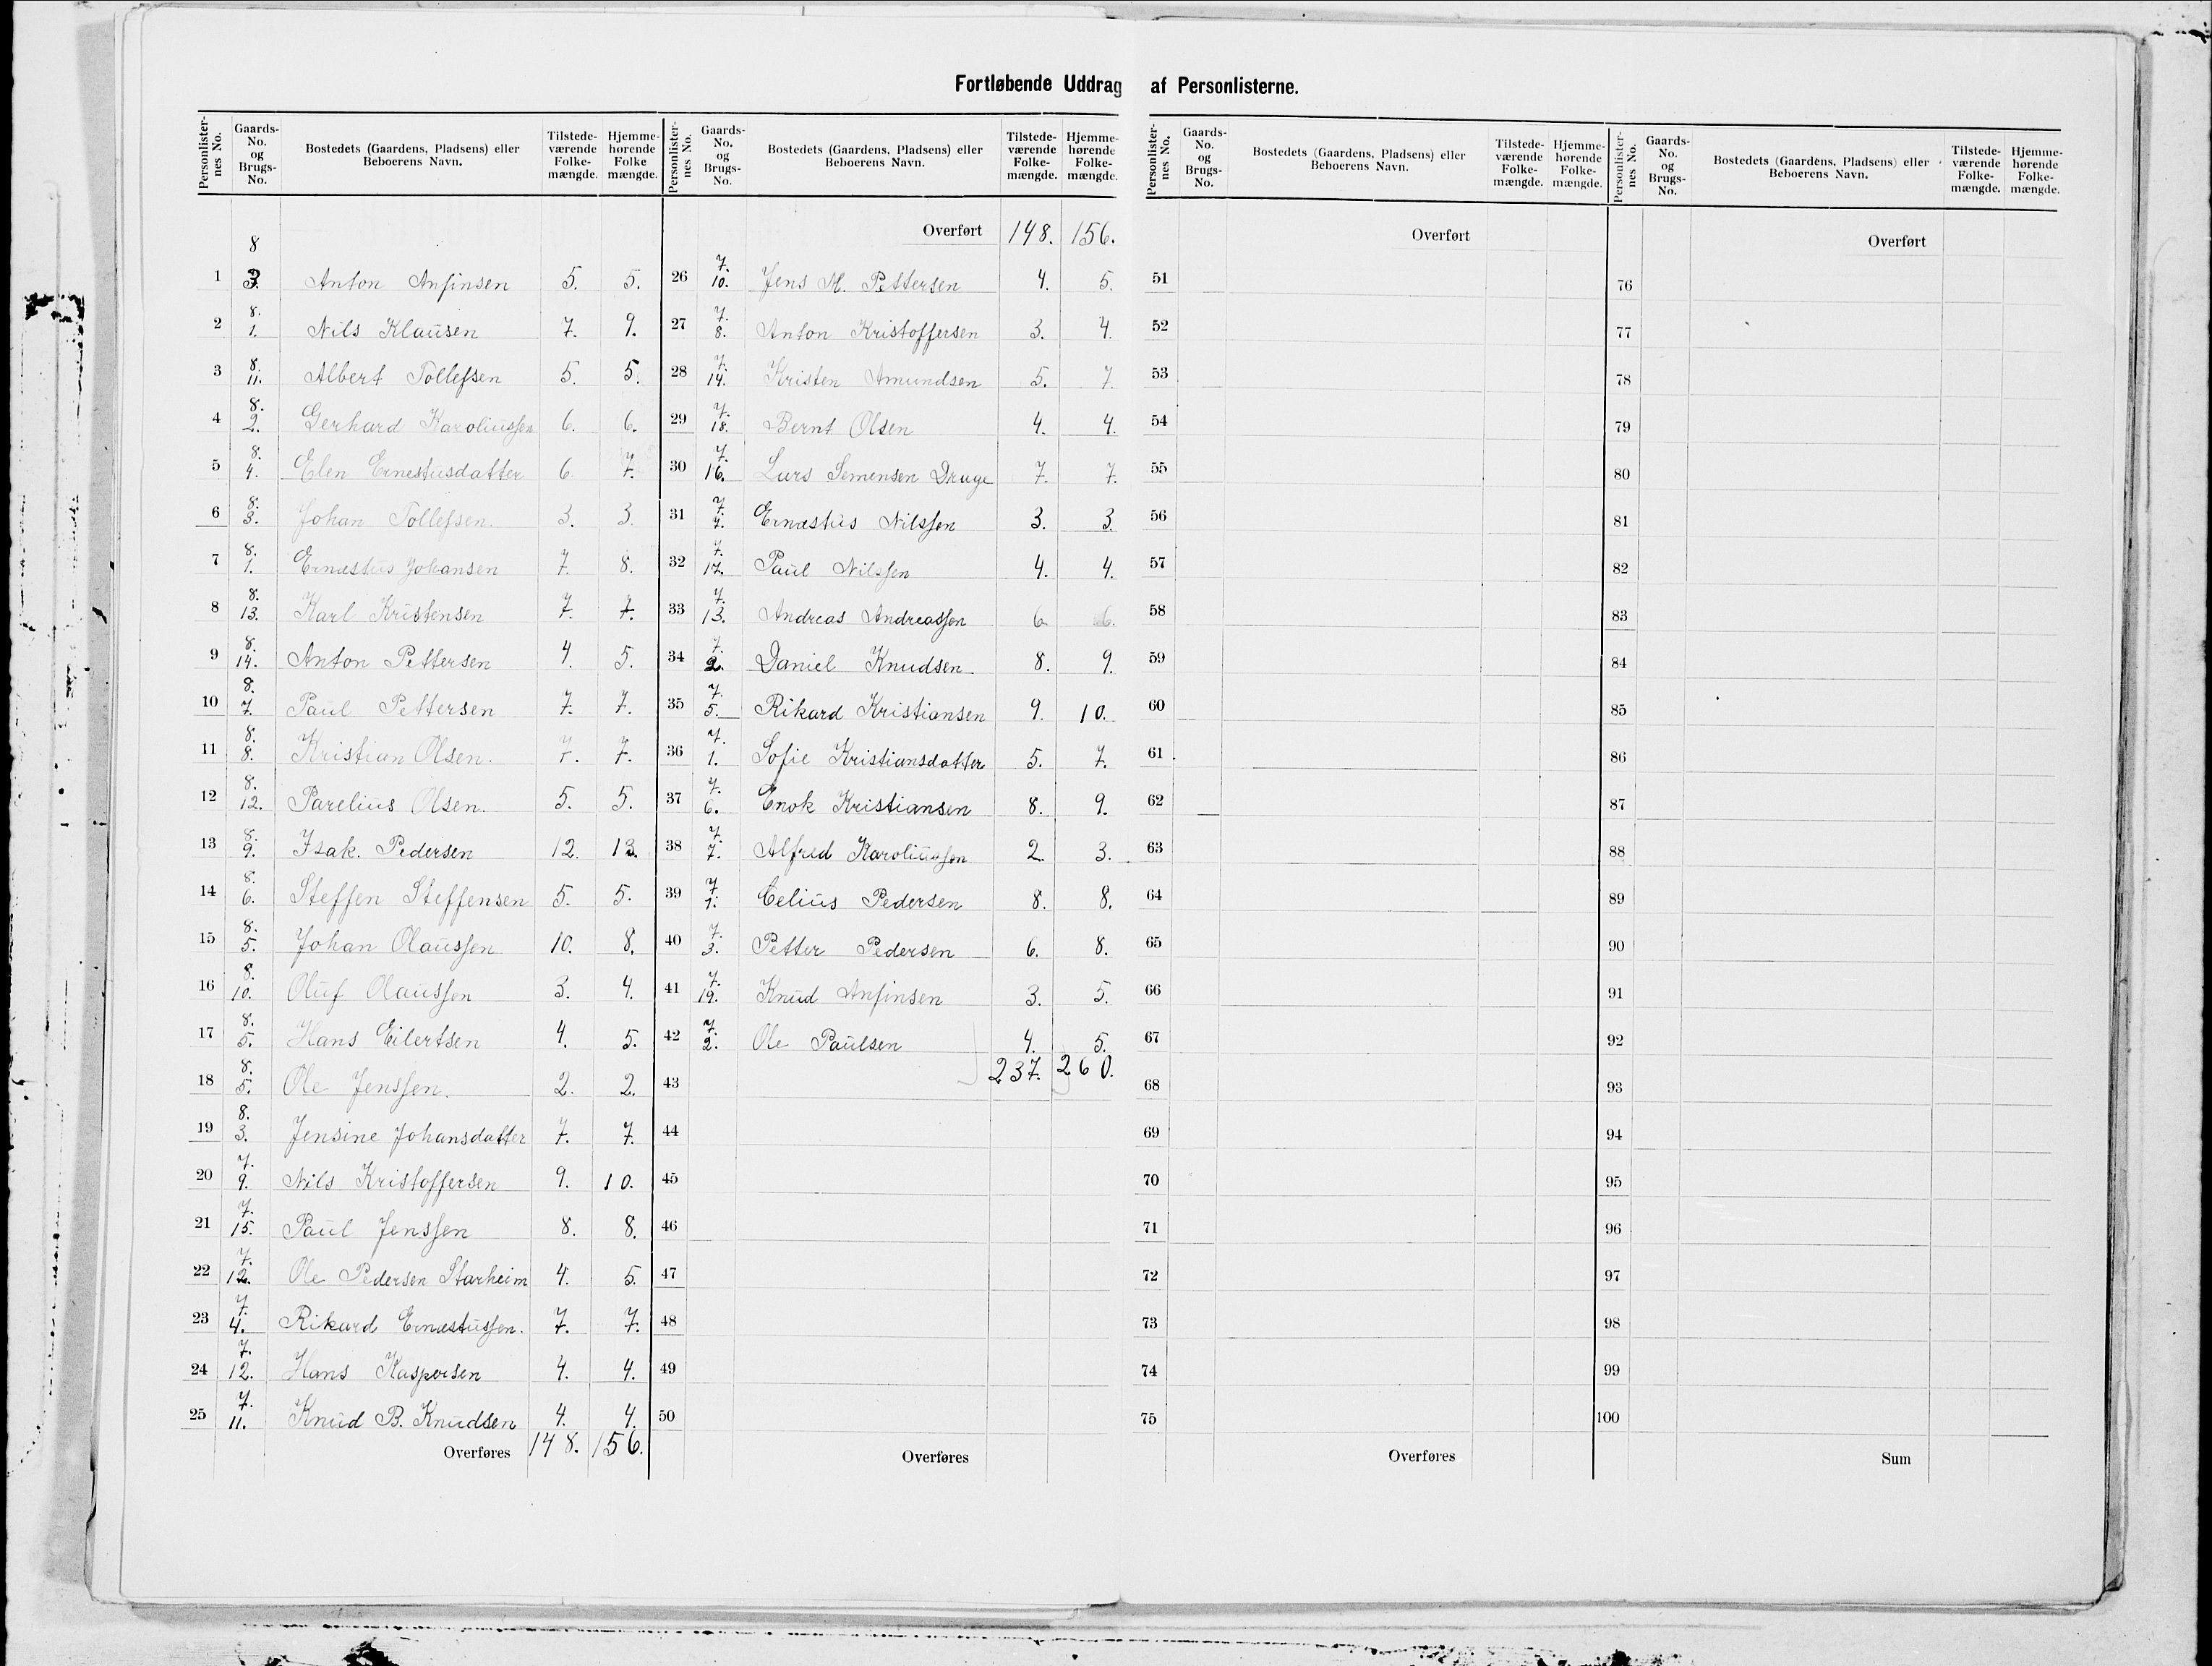 Fortløbende Uddrag af Personlisterne.
Personlisternes No. Gaards-No. og Brugs-No. Bostedets (Gaardens, Pladsens) eller Beboerens Navn. Tilstedeværende Folkemængde. Hjemmehørende Folkemængde.
1 8 3. Anton Anfinsen 5. 5.
2 8. 1. Nils Klausen 7. 9.
3 8. 11. Albert Tollefsen 5. 5.
4 8. 2. Gerhard Karoliussen 6. 6.
5 8. 4. Elen Ernestusdatter 6. 7.
6 8. 3. Johan Tollefsen. 3. 3.
7 8. 1. Ernæstus Johansen 7. 8.
8 8. 13. Karl Kristensen 7. 7.
9 8. 14. Anton Pettersen 4. 5.
10 8. 7. Paul Pettersen 7. 7.
11 8. 8. Kristian Olsen. 7. 7.
12 8. 12. Parelius Olsen. 5. 5.
13 8. 9. Isak. Pedersen 12. 13.
14 8. 6. Steffen Steffensen 5. 5.
15 8. 5. Johan Olaussen 10. 8.
16 8. 10. Oluf Olaussen 3. 4.
17 8. 5. Hans Eilertsen 4. 5.
18 8. 5. Ole Jenssen. 2. 2.
19 8. 3. Jensine Johansdatter 7. 7.
20 7. 9. Nils Kristoffersen 9. 10.
21 7. 15. Paul Jenssen 8. 8.
22 7. 12. Ole Pedersen Starheim 4. 5.
23 7. 4. Rikard Ernæstussen. 7. 7.
24 7. 12. Hans Kaspersen 4. 4.
25 7. 11. Knud B. Knudsen 4. 4.
Overføres 148. 156.
Personlisternes No. Gaards-No. og Brugs-No. Bostedets (Gaardens, Pladsens) eller Beboerens Navn. Tilstedeværende Folkemængde. Hjemmehørende Folkemængde.
Overført 148. 156.
26 7. 10. Jens M. Pettersen 4. 5.
27 7. 8. Anton Kristoffersen 3. 4.
28 7. 14. Kristen Amundsen 5. 7.
29 7. 18. Bernt Olsen 4. 4.
30 7. 16. Lars Semensen Drage 7. 7.
31 7. 7. Ernæstus Nilssen 3. 3.
32 7. 17. Paul Nilssen 4. 4.
33 7. 13. Andreas Andreassen 6. 6.
34 7. 2. Daniel Knudsen 8. 9.
35 7. 5. Rikard Kristiansen 9. 10.
36 7. 1. Sofie Kristiansdatter 5. 7.
37 7. 6. Enok Kristiansen 8. 9.
38 7. 7. Alfred Karoliussen 2. 3.
39 7. 1. Celius Pedersen 8. 8.
40 7. 3. Petter Pedersen 6. 8.
41 7. 19. Knud Anfinsen 3. 5.
42 7. 2. Ole Paulsen 4. 5.
43 237. 260.
44
45
46
47
48
49
50
Overføres
Personlisternes No. Gaards-No. og Brugs-No. Bostedets (Gaardens, Pladsens) eller Beboerens Navn. Tilstedeværende Folkemængde. Hjemmehørende Folkemængde.
Overført
51
52
53
54
55
56
57
58
59
60
61
62
63
64
65
66
67
68
69
70
71
72
73
74
75
Overføres
Personlisternes No. Gaards-No. og Brugs-No. Bostedets (Gaardens, Pladsens) eller Beboerens Navn. Tilstedeværende Folkemængde. Hjemmehørende Folkemængde.
Overført
76
77
78
79
80
81
82
83
84
85
86
87
88
89
90
91
92
93
94
95
96
97
98
99
100
Sum